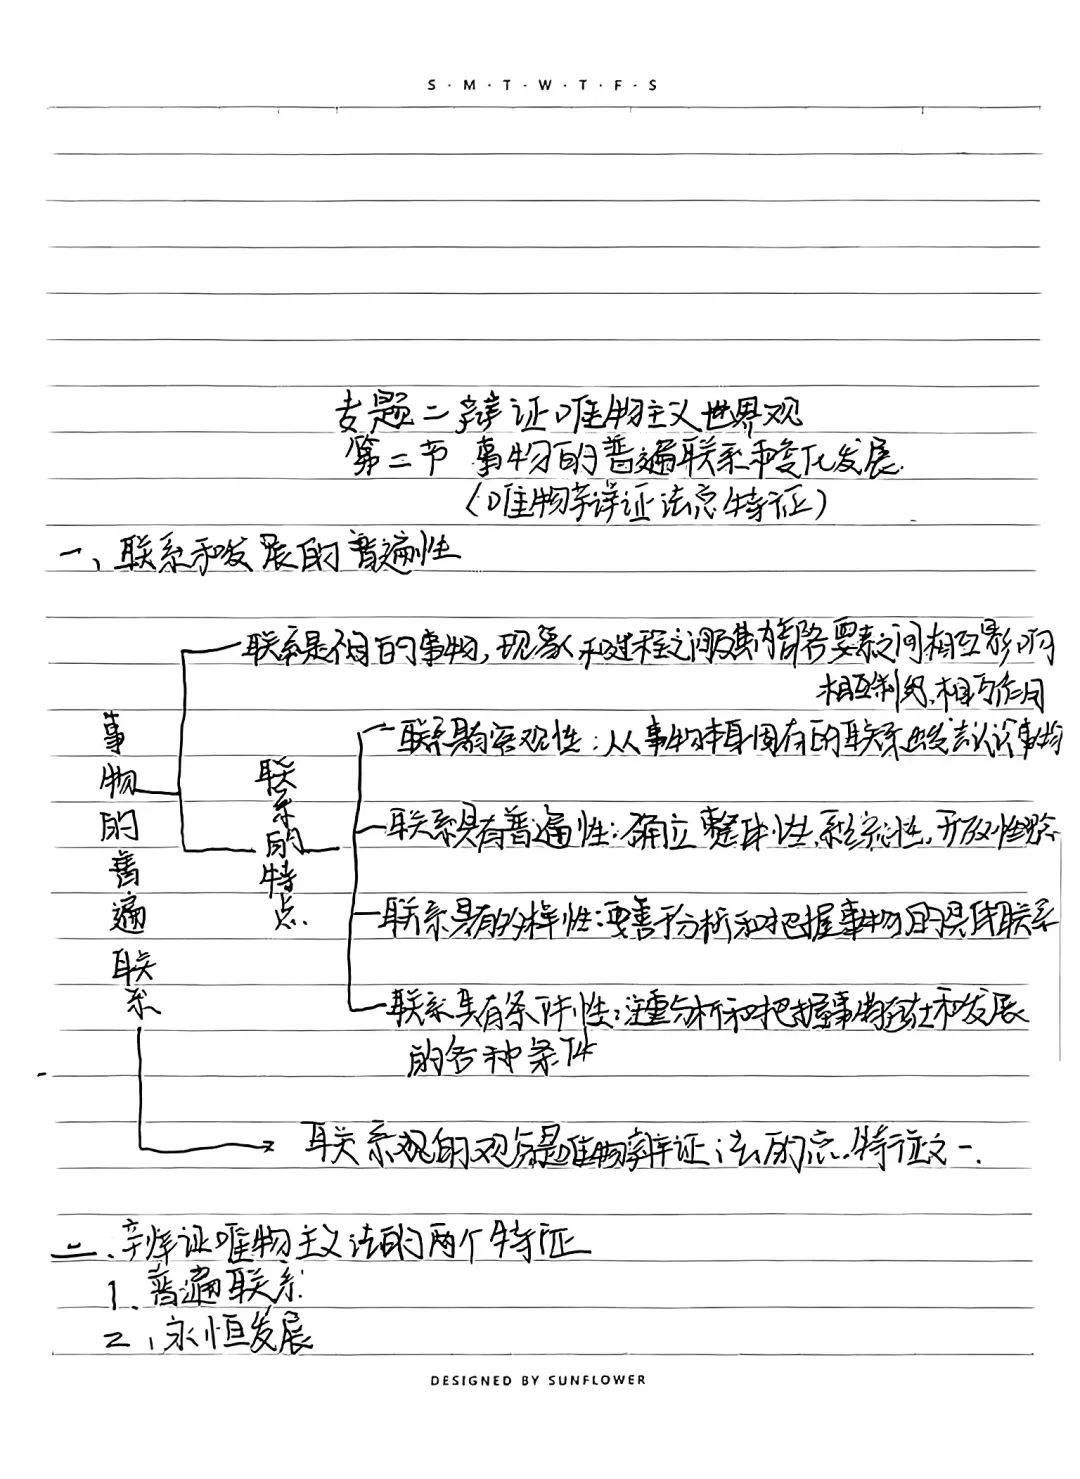 S·M·T·W·T·F·S
专题二 辩证唯物主义世界观
第二节 事物的普遍联系和变化发展
(唯物辩证法总特征)
一、联系和发展的普遍性
事物的普遍联系
联系是不同的事物,现象和过程之间及其内部各要素之间相互影响
相互制约,相互作用
联系的特点
联系具有客观性:从事物本身固有的联系出发去认识事物
联系具有普遍性:确立整体性,系统性,开放性
联系具有多样性:要善于分析和把握事物的具体联系
联系具有条件性:注重分析和把握事物存在和发展
的各种条件
联系观的观点是唯物辩证法的总特征之一.
二、辩证唯物主义法的两个特征
1、普遍联系
2、永恒发展
DESIGNED BY SUNFLOWER